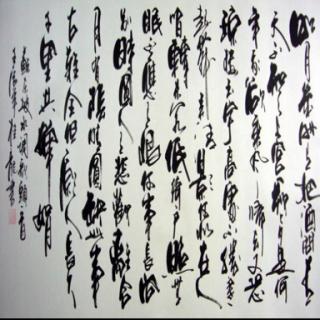 明月幾時有把酒問青
天不知天上宮闕今夕是何
年我欲乘風歸去又恐
瓊樓玉宇高處不勝寒
起舞弄清影何似在人
間轉朱閣低綺戶照無
眠不應有恨何事長向
別時圓人有悲歡離合
月有陰晴圓缺此事
古難全但願人長久
千里共嬋娟
蘇東坡水調歌頭一首